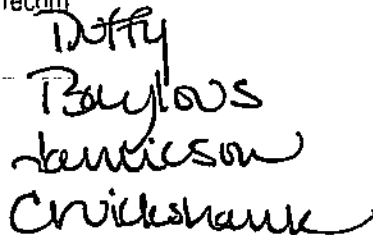 Duffy
Baylous
Jamieson
Cruickshank